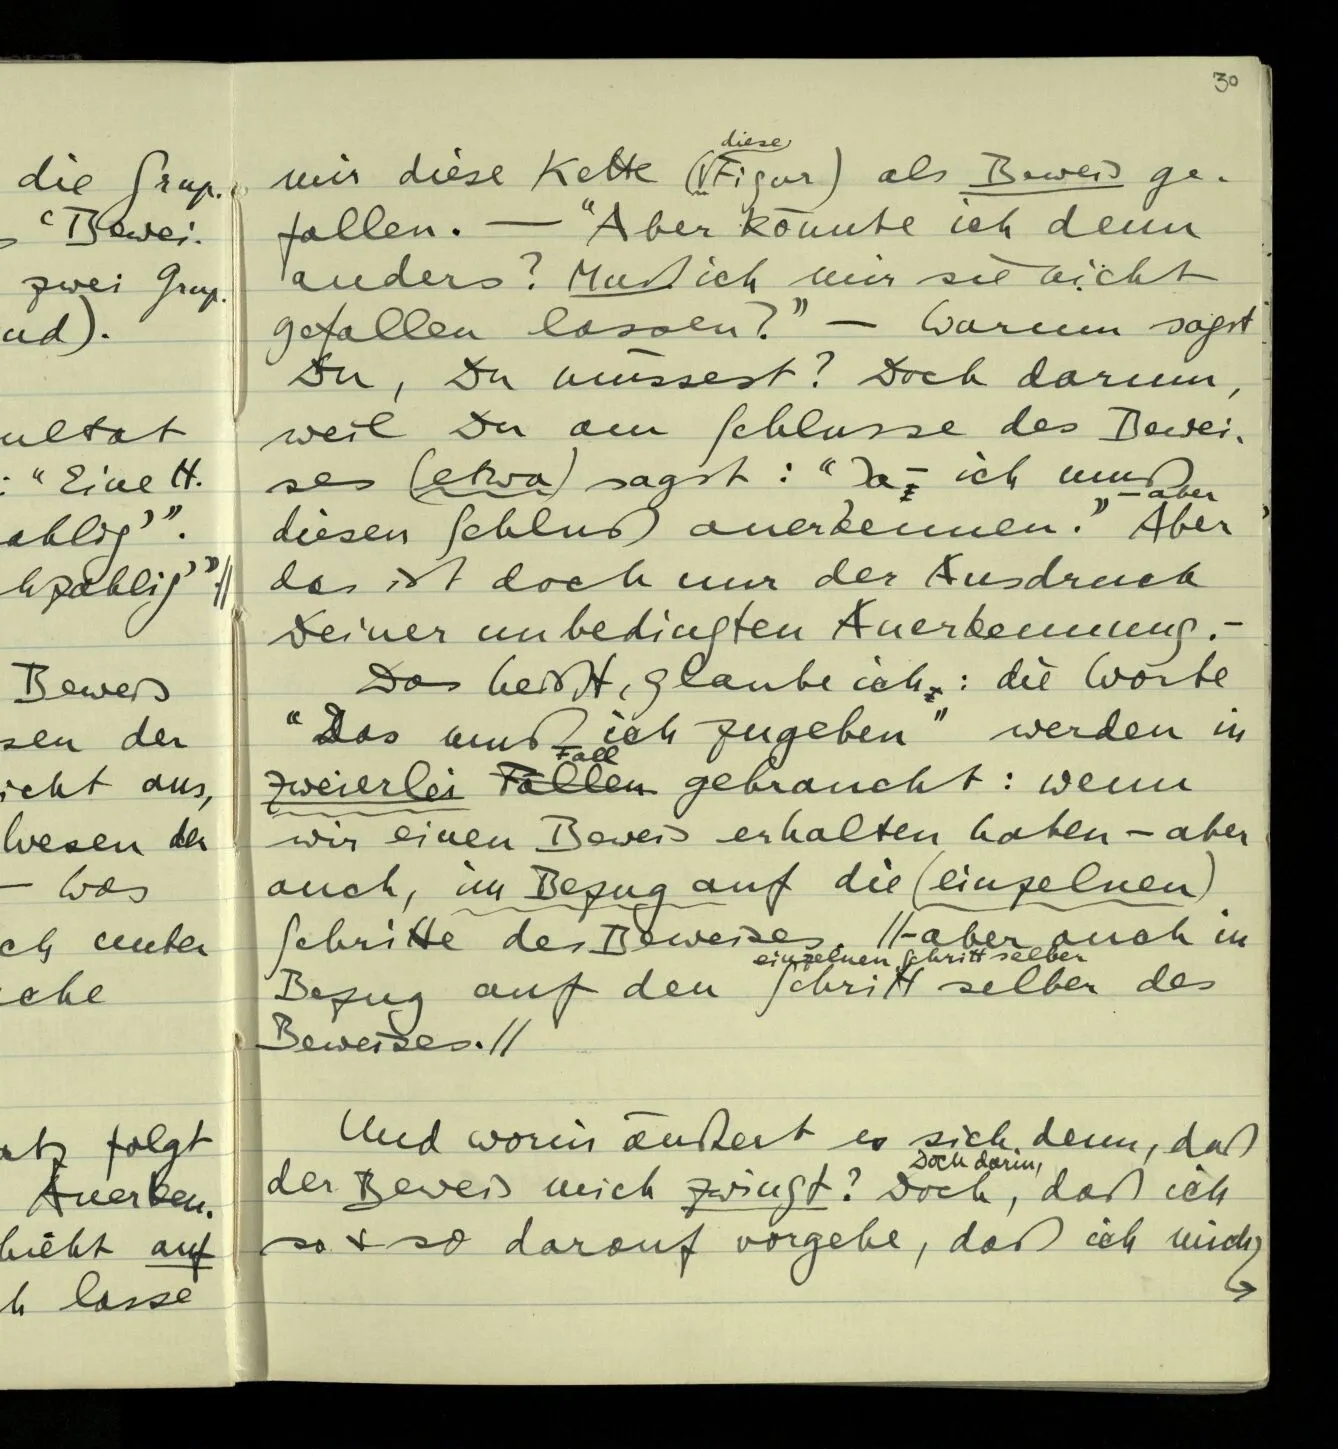 30
die Grup.
"Bewei.
zwei Grup.
und).
ultat
: "Eine H.
ahlig'".
hzahlig'".//
Beweis
sen der
icht aus,
Wesen der
— Was
ch unter
che
atz folgt
Anerken.
hieht auf
h lasse
diese
mir diese Kette (Figur) als Beweis ge-
fallen. — "Aber könnte ich denn
anders? Muß ich mir sie nicht
gefallen lassen?" — Warum sagst
Du, Du müssest? Doch darum,
weil Du am Schlusse des Bewei-
ses (etwa) sagst: "Ja – ich muß
– aber
diesen Schluß anerkennen." Aber
das ist doch nur der Ausdruck
Deiner unbedingten Anerkennung. –
Das heißt, glaube ich,: die Worte
"Das muß ich zugeben" werden in
Fall
zweierlei Fällen gebraucht: wenn
wir einen Beweis erhalten haben – aber
auch, in Bezug auf die (einzelnen)
Schritte des Beweises. //– aber auch in
einzelnen Schritt selber
Bezug auf den Schritt selber des
Beweises.//
Und worin äußert es sich denn, daß
Doch darin,
der Beweis mich zwingt? Doch, daß ich
so & so darauf vorgehe, daß ich mich